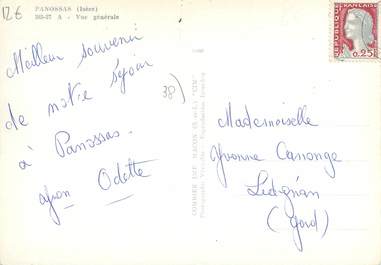 12€
PANOSSAS (Isère)
283-27 A - Vue générale
Meilleur souvenir
de notre séjour
à Panossas.
Odette
38)
COMBIER IMP. MACON (S.-et-L.) "CIM"
REPUBLIQUE FRANÇAISE
0,25
Mademoiselle
Yvonne Canonge
Lédignan
(Gard)